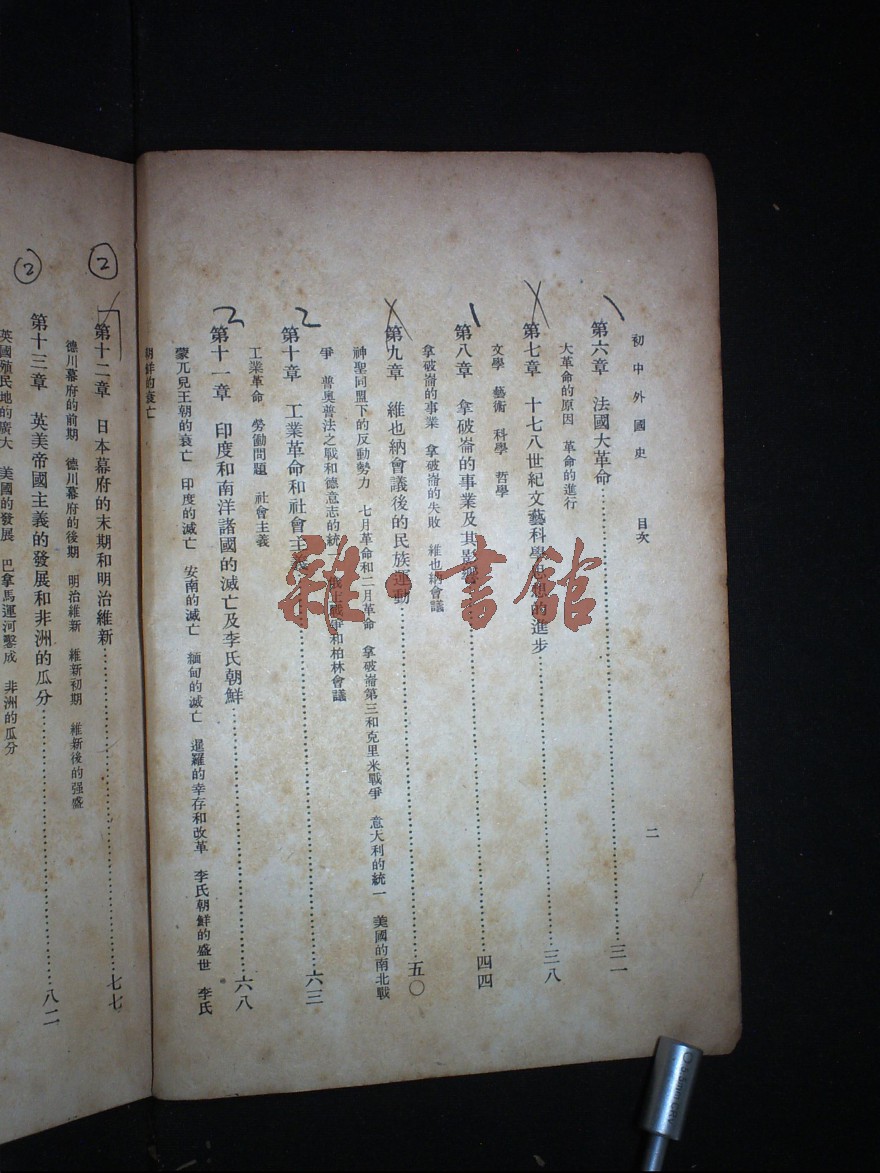 初中外國史　目次
二
第六章　法國大革命……三一
大革命的原因　革命的進行
第七章　十七八世紀文藝科學思想的進步……三八
文學　藝術　科學　哲學
第八章　拿破崙的事業及其影響……四四
拿破崙的事業　拿破崙的失敗　維也納會議
第九章　維也納會議後的民族運動……五〇
神聖同盟下的反動勢力　七月革命和二月革命　拿破崙第三和克里米戰爭　意大利的統一　美國的南北戰
爭　普奧普法之戰和德意志的統一　俄土戰爭和柏林會議
第十章　工業革命和社會主義……六三
工業革命　勞働問題　社會主義
第十一章　印度和南洋諸國的滅亡及李氏朝鮮……六八
蒙兀兒王朝的衰亡　印度的滅亡　安南的滅亡　緬甸的滅亡　暹羅的幸存和改革　李氏朝鮮的盛世　李氏
朝鮮的衰亡
第十二章　日本幕府的末期和明治維新……七七
德川幕府的前期　德川幕府的後期　明治維新　維新初期　維新後的强盛
第十三章　英美帝國主義的發展和非洲的瓜分……八二
英國殖民地的廣大　美國的發展　巴拿馬運河鑿成　非洲的瓜分
1
2
2
②
②
雜·書館
0.5mm